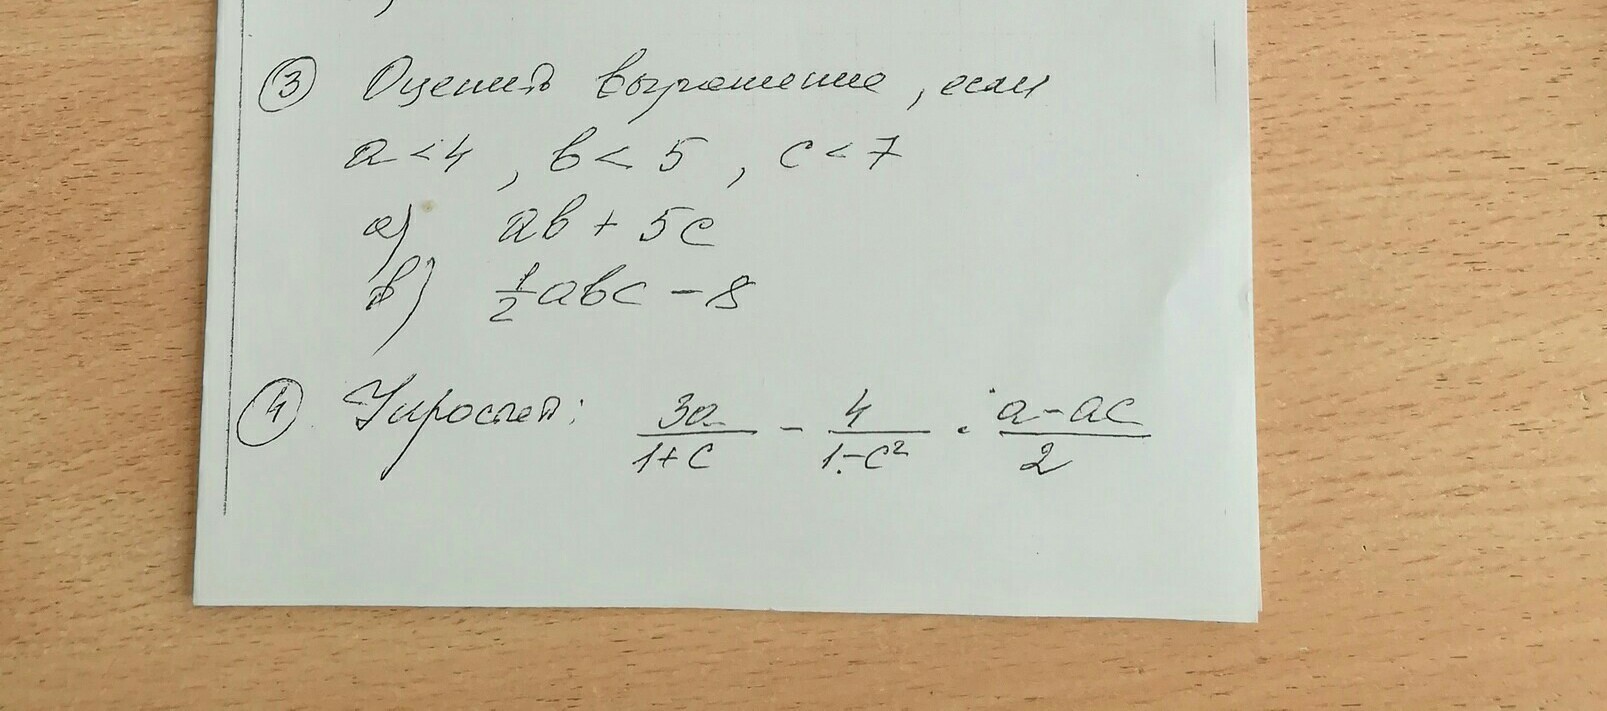 ③ Оценить выражение, если
a < 4, b < 5, c < 7
а) ab + 5c
в) 1/2 abc - 8
④ Упростить: 3a/(1+c) - 4/(1-c²) · (a-ac)/2